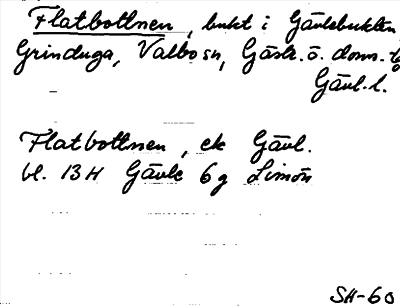 Flatbottnen, bukt i Gävlebukten
Grinduga, Valbo sn, Gästr. ö. doms.
Gävl. l.
Flatbottnen, ek Gävl.
bl. 13H Gävle 6g Limön
SH-60